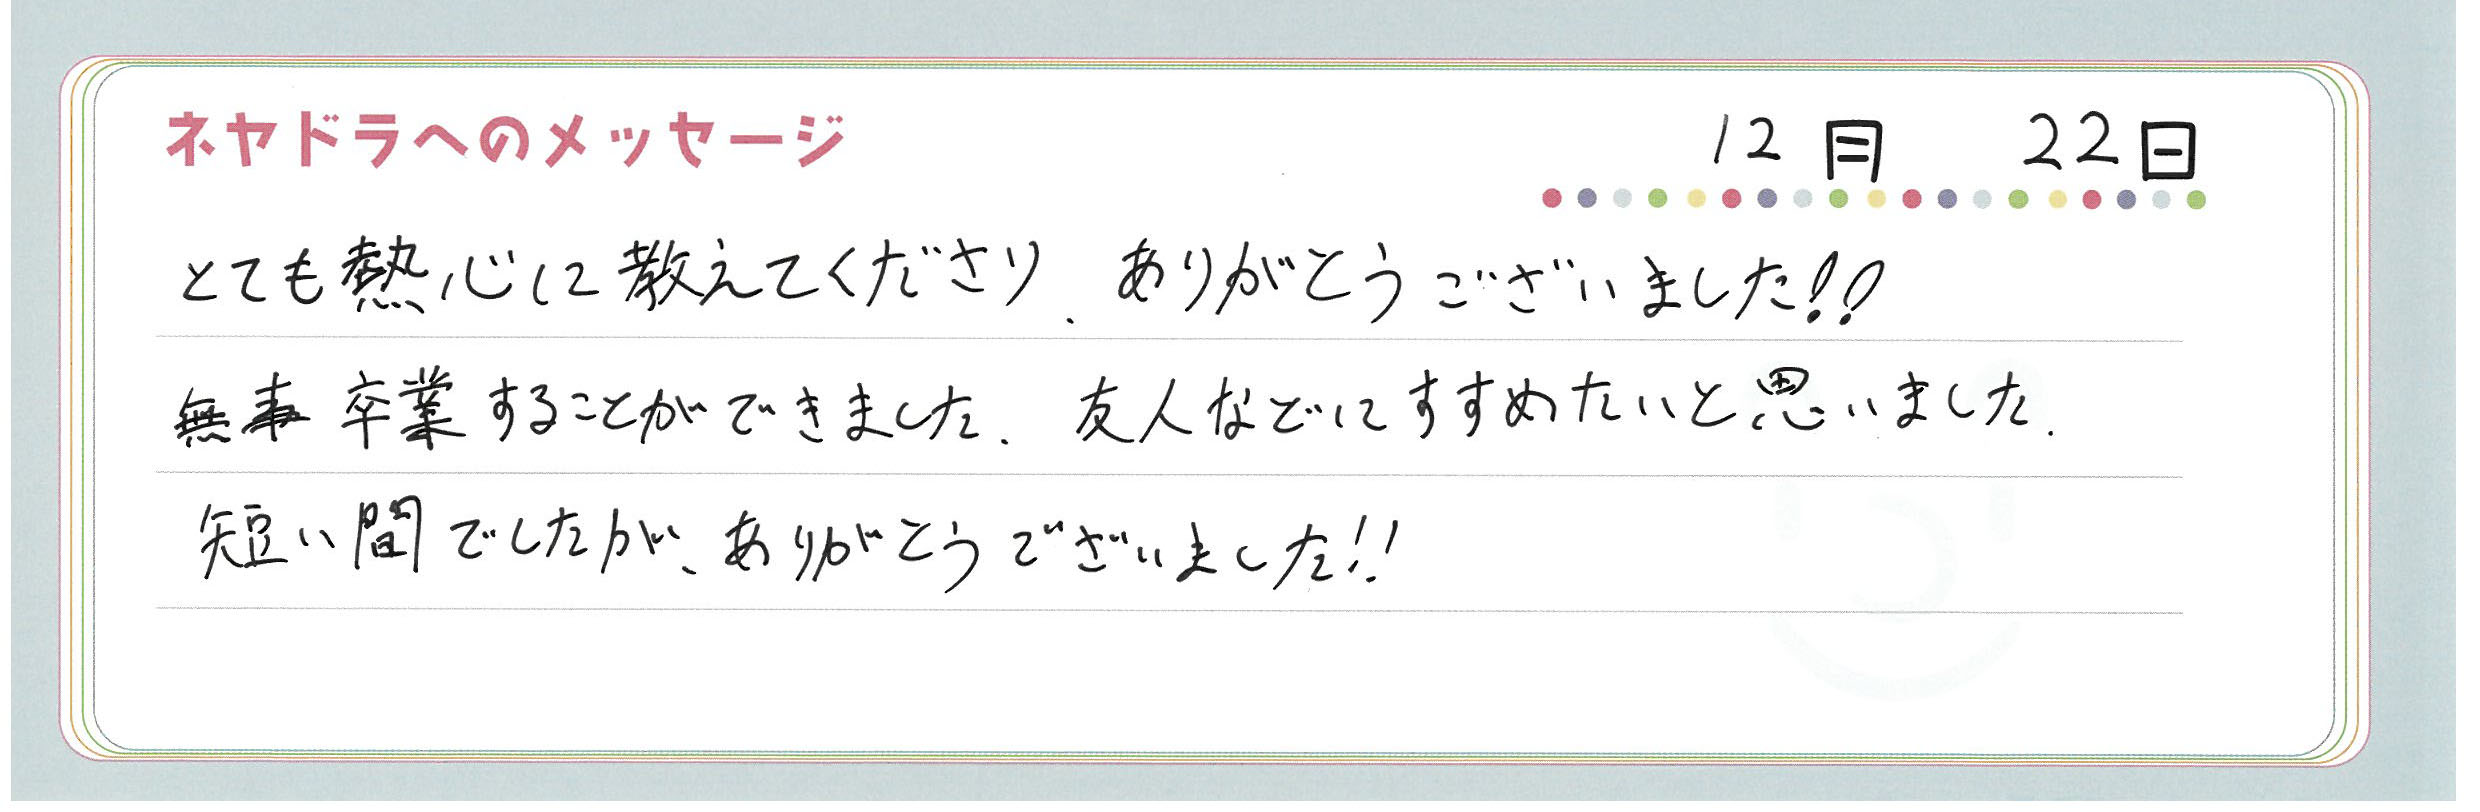 ネヤドラへのメッセージ 12月 22日
とても熱心に教えてくださり、ありがとうございました!!
無事卒業することができました。友人などにすすめたいと思いました。
短い間でしたが、ありがとうございました!!